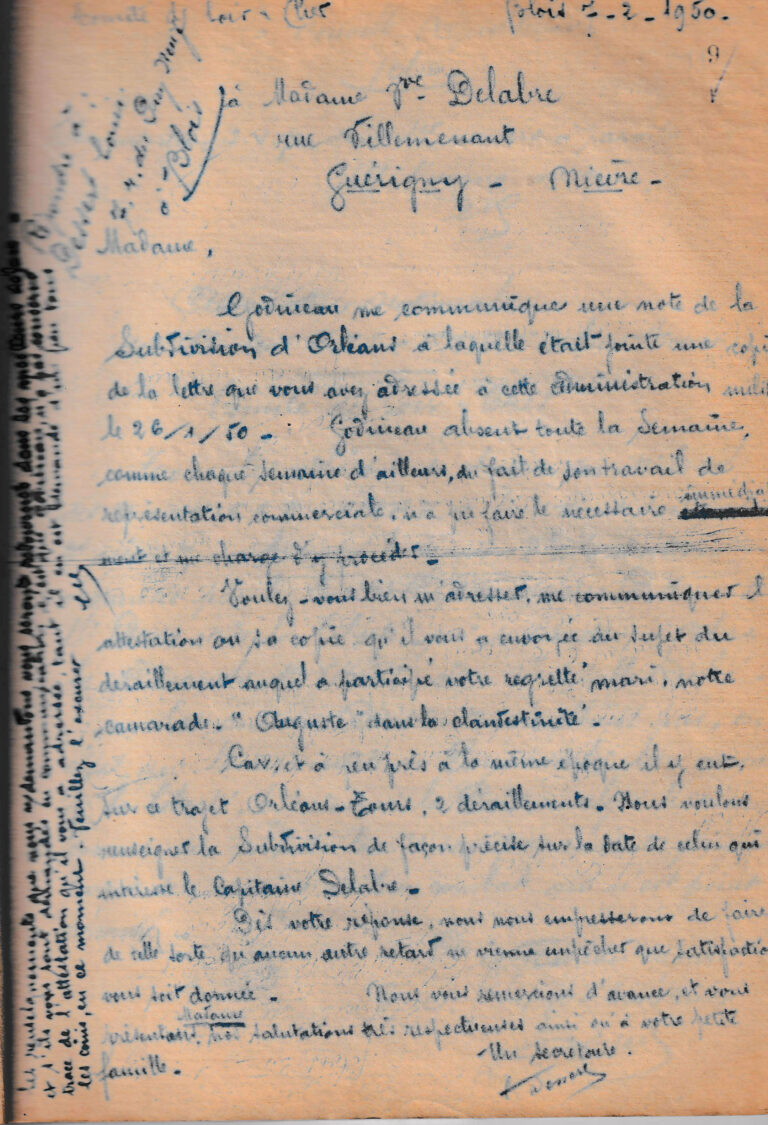 Loir & Cher Blois 7-2-1950.
9
à Madame Vve Delabre
rue Villemenant
Guérigny - Nièvre -
Répondre à
Dessert Louis
à Blois
Madame,
Godineau me communique une note de la
Subdivision d'Orléans à laquelle était jointe une copi
de la lettre que vous avez adressée à cette administration mili
le 26/1/50 - Godineau absent toute la semaine,
comme chaque semaine d'ailleurs, du fait de son travail de
représentation commerciale, n'a pu faire le nécessaire immédia
ment et me charge d'y procéder -
Voulez-vous bien m'adresser, me communiquer l
attestation ou sa copie qu'il vous a envoyée au sujet du
déraillement auquel a participé votre regretté mari, notre
camarade "Auguste" dans la clandestinité.
Car, et à peu près à la même époque il y eut,
sur ce trajet Orléans-Tours, 2 déraillements. Nous voulons
renseigner la Subdivision de façon précise sur la date de celui qui
intéresse le Capitaine Delabre -
Dès votre réponse, nous nous empresserons de faire
de telle sorte qu'aucun autre retard ne vienne empêcher que satisfactio
vous soit donnée - Nous vous remercions d'avance, et vous
présentons, Madame nos salutations très respectueuses ainsi qu'à votre petite
famille -
Un secrétaire.
Les renseignements que nous demandons vous seront retournés dans les
et s'ils vous sont demandés en communication, c'est que Godineau n'a pas conservé
trace de l'attestation qu'il vous a adressée, tant il en est demandé d'un peu tous
les coins, en ce moment. Veuillez l'excuser